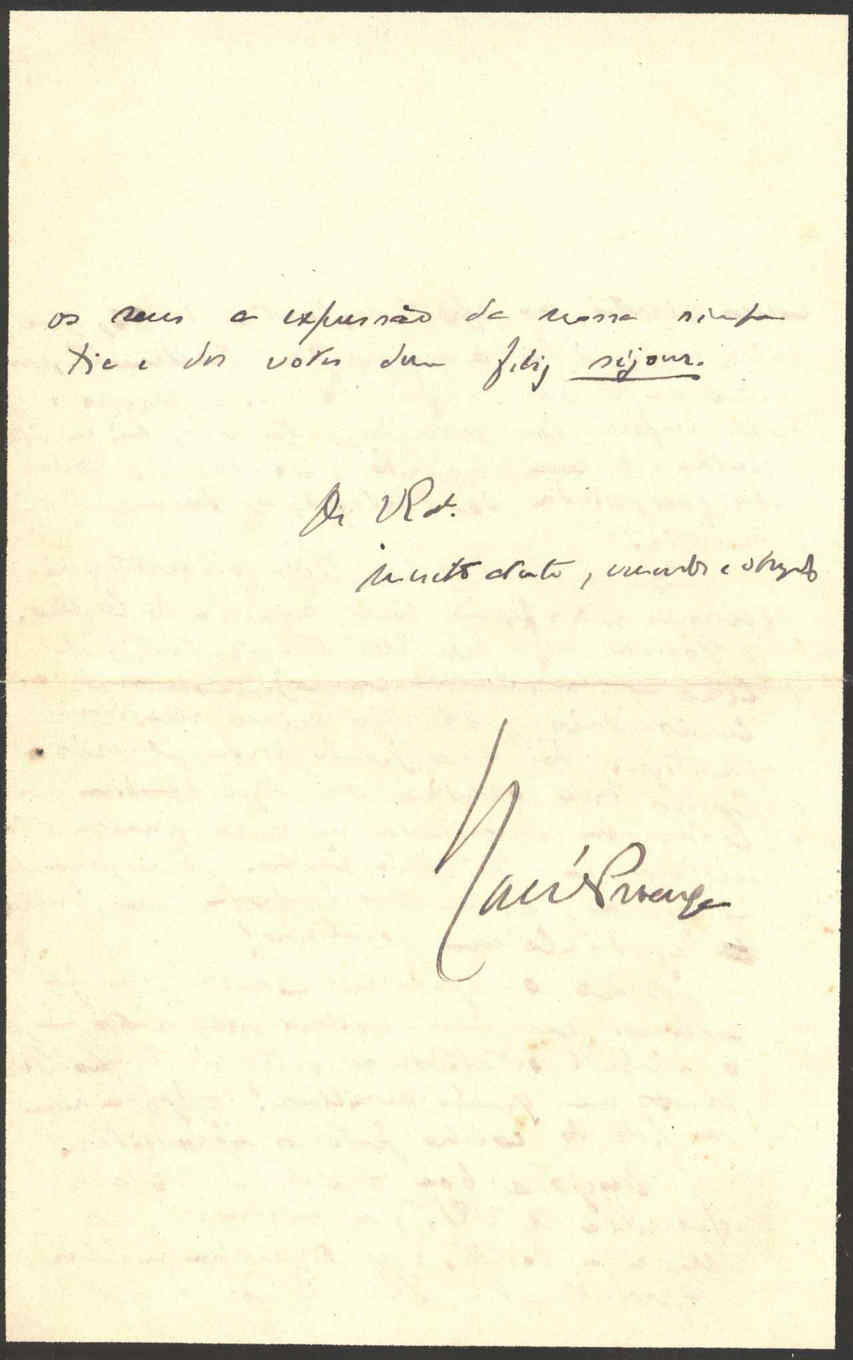 os seus a expressão da nossa simpa
tia e dos votos dum feliz séjour.
De V. Ex.
muito atento, venerador e obrigado
Raul Proença